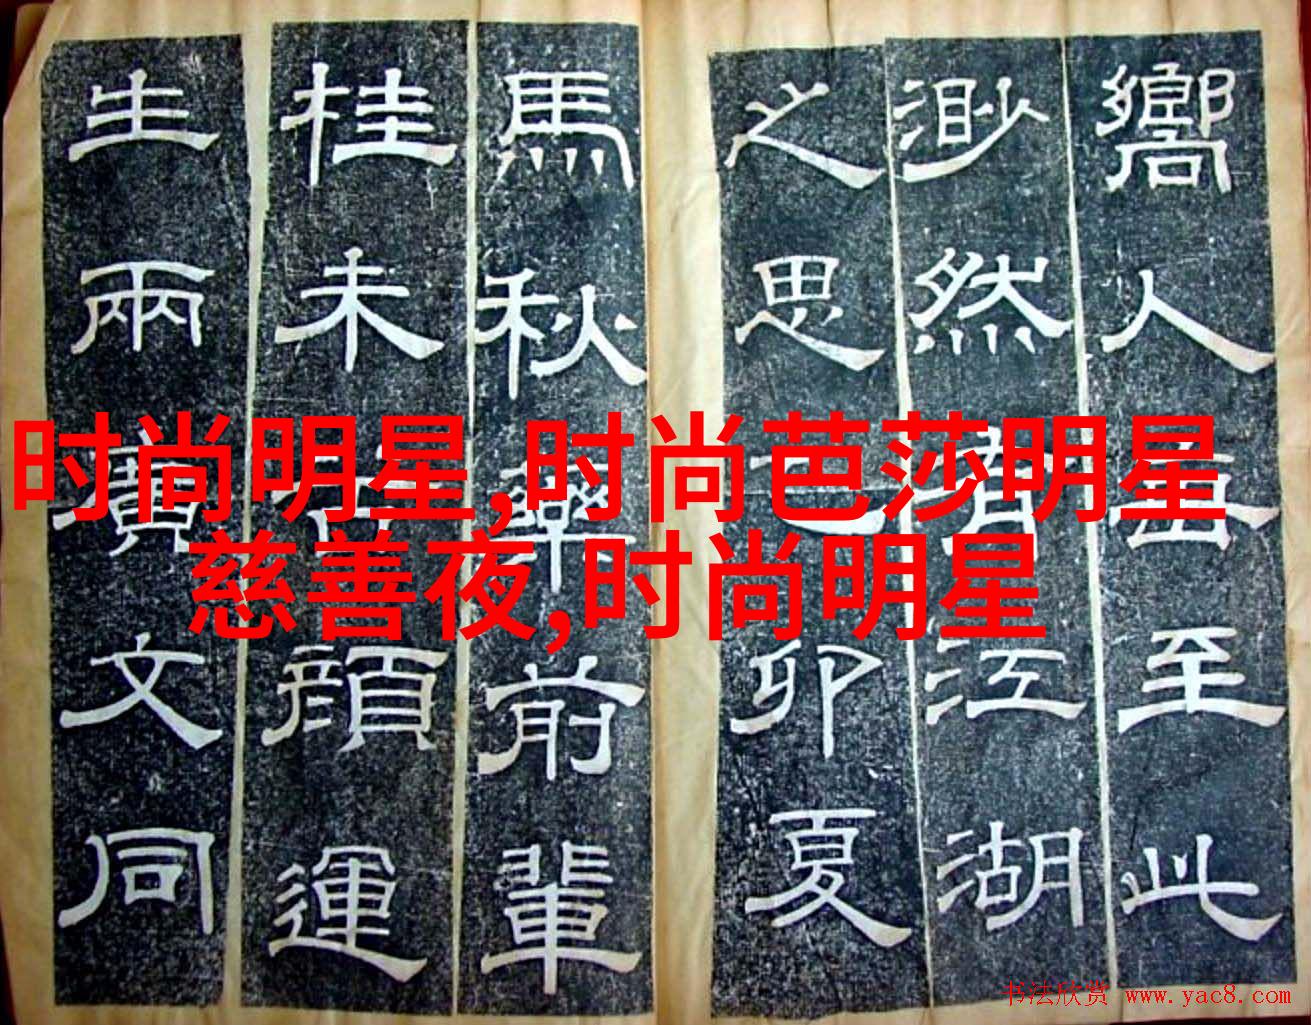 嚮人至此
渺然有江湖
之思乙卯夏
馬秋藥前輩
桂未谷顏運
生兩廣文同
时尚明星,时尚芭莎明星
慈善夜,时尚明星
书法欣赏 www.yac8.com